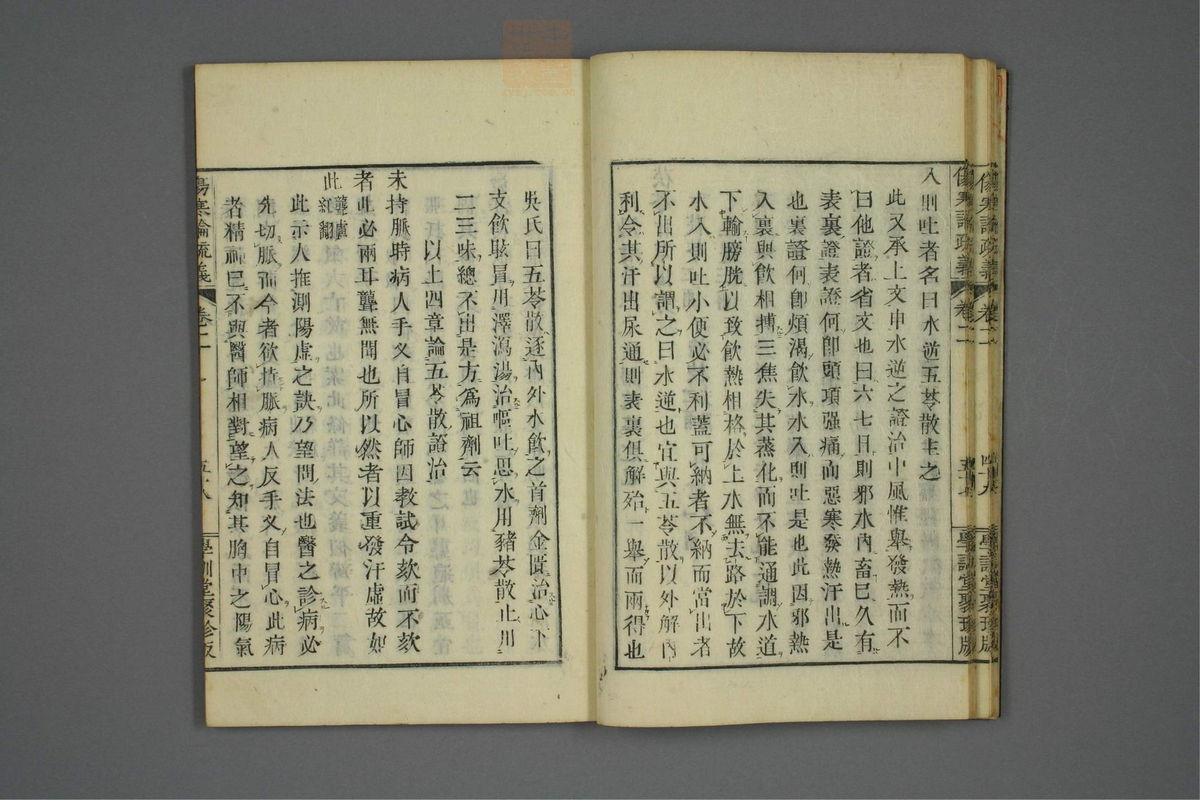 傷寒論疏義
卷二
學訓堂聚珍版
入則吐者名曰水逆五苓散主之
此又承上文申水逆之證治中風惟舉發熱而不
曰他證者省文也曰六七日則邪水內畜已久有
表裏證表證何卽頭項强痛而惡寒發熱汗出是
也裏證何卽煩渴飲水水入則吐是也此因邪熱
入裏與飲相搏三焦失其蒸化而不能通調水道
下輸膀胱以致飲熱相格於上水無去路於下故
水入則吐小便必不利蓋可納者不納而當出者
不出所以謂之曰水逆也宜與五苓散以外解內
利令其汗出尿通則表裏俱解殆一舉而兩得也
吳氏曰五苓散逐內外水飲之首劑金匱治心下
支飲眩冒用澤瀉湯治嘔吐思水用豬苓散止用
二三味總不出是方爲祖劑云
以上四章論五苓散證治
未持脈時病人手叉自冒心師因教試令欬而不欬
者此必兩耳聾無聞也所以然者以重發汗虛故如
此
此示人推測陽虛之訣乃望問法也醫之診病必
先切脈而今者欲持脈病人反手叉自冒心此病
者精神已不與醫師相對望之知其胸中之陽氣
傷寒論疏義
卷二
五十八
學訓堂聚珍版